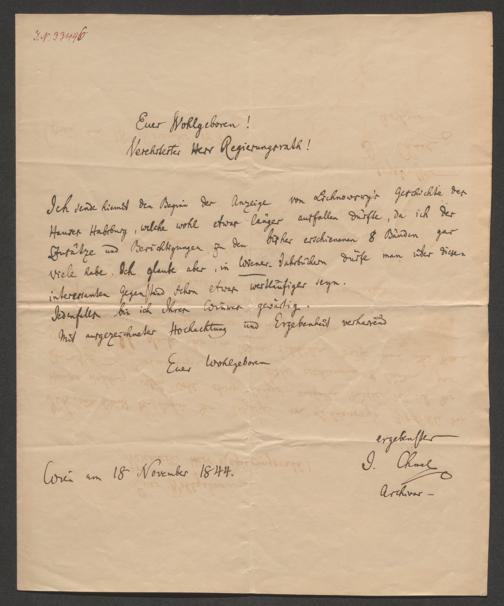 I.N. 33496
Euer Wohlgeboren!
Verehrtester Herr Regierungsrath!
Ich sende hiemit den Beginn der Anzeige von Lichnowsky's Geschichte des
Hauses Habsburg, welche wohl etwas länger ausfallen dürfte, da ich der
Zusätze und Berichtigungen zu den bisher erschienenen 8 Bänden gar
viele habe. Ich glaube aber, in Wiener-Jahrbüchern dürfe man über diesen
interessanten Gegenstand schon etwas weitläufiger seyn.
Jedenfalls bin ich Ihres Winkes gewärtig.
Mit ausgezeichneter Hochachtung und Ergebenheit verharrend
Euer Wohlgeboren
ergebenster
J. Chmel
Archivar
Wien am 18 November 1844.